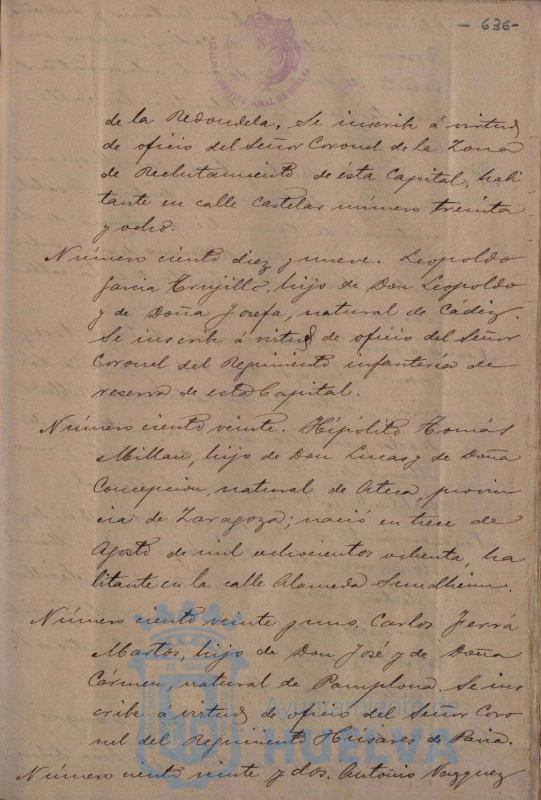 - 636-
de la Redondela. Se inscribe á virtud
de oficio del Señor Coronel de la Zona
de Reclutamiento de ésta Capital, habi
tante en calle Castelar número treinta
y ocho.
Número ciento diez y nueve. Leopoldo
Garcia Trujillo, hijo de Don Leopoldo
y de Doña Josefa, natural de Cádiz.
Se inscribe á virtud de oficio del Señor
Coronel del Regimiento infantería de
reserva de esta Capital.
Número ciento veinte. Hipólito Tomás
Millan, hijo de Don Lucas y de Doña
Concepcion, natural de Ateca, provin
cia de Zaragoza; nació en trece de
Agosto de mil ochocientos ochenta, ha
bitante en la calle Alameda Sundheim.
Número ciento veinte y uno. Carlos Ferrá
Martos, hijo de Don José y de Doña
Cármen, natural de Pamplona. Se ins
cribe á virtud de oficio del Señor Coro
nel del Regimiento Húsares de Pavia.
Número ciento veinte y dos. Antonio Vazquez
Ayuntamiento de
HUELVA